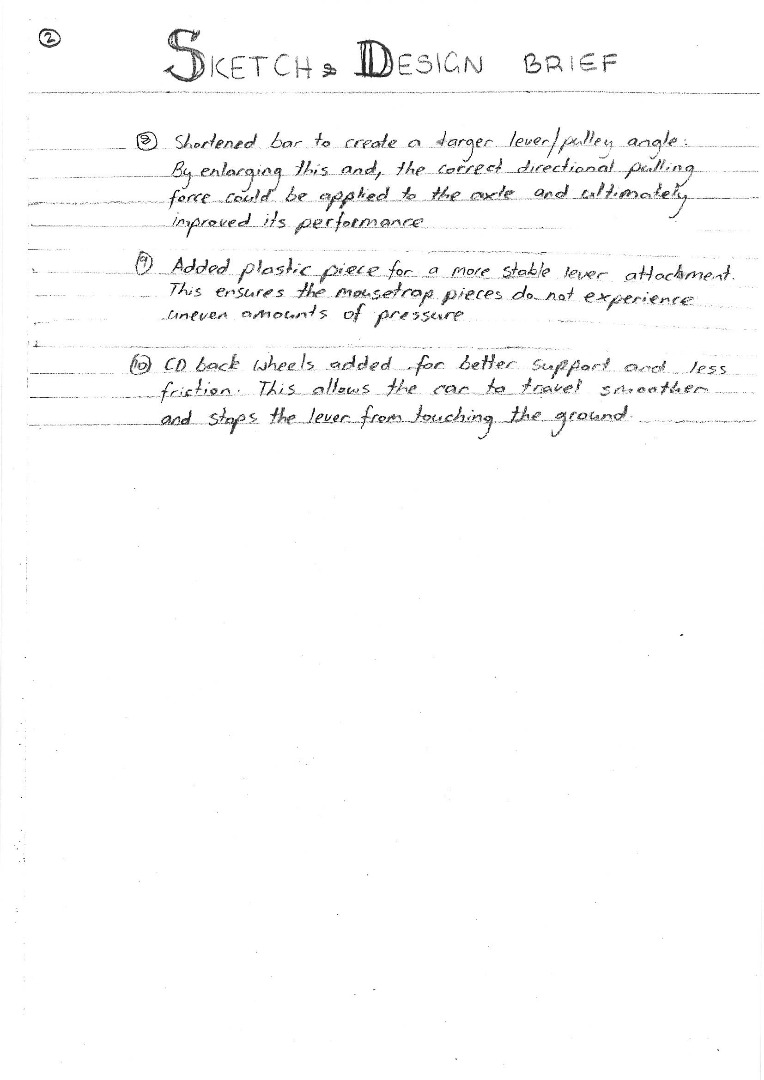 ②
SKETCH & DESIGN BRIEF
⑧ Shortened bar to create a larger lever/pulley angle:
By enlarging this and, the correct directional pulling
force could be applied to the axle and ultimately
improved its performance
⑨ Added plastic piece for a more stable lever attachment.
This ensures the mousetrap pieces do not experience
uneven amounts of pressure
⑩ CD back wheels added for better support and less
friction. This allows the car to travel smoother
and stops the lever from touching the ground.